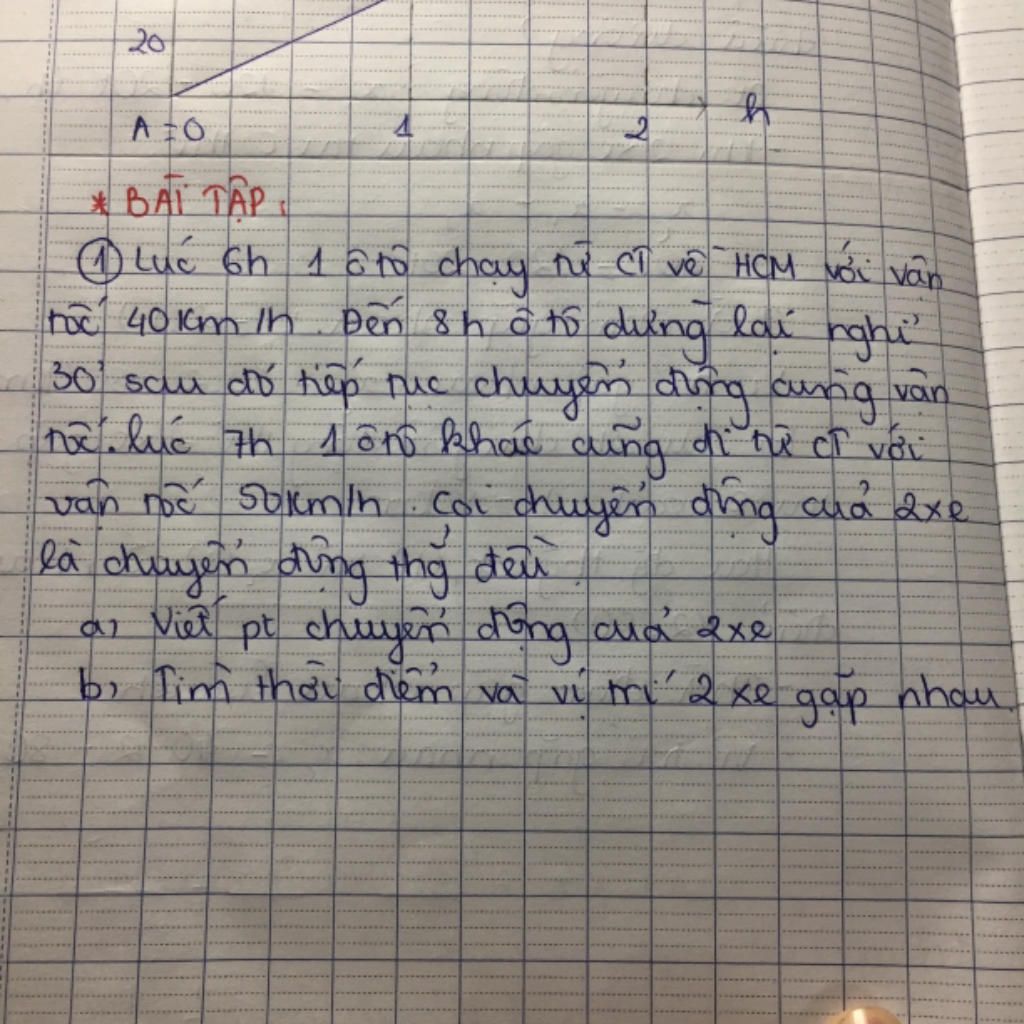 20
A=0 1 2 h
* BÀI TẬP:
① Lúc 6h 1 ô tô chạy từ CT về HCM với vận
tốc 40km/h. Đến 8h ô tô dừng lại nghỉ
30' sau đó tiếp tục chuyển động cùng vận
tốc. lúc 7h 1 ô tô khác cũng đi từ CT với
vận tốc 50km/h. Coi chuyển động của 2xe
là chuyển động thg̉ đều
a, Viết pt chuyển động của 2xe
b, Tìm thời điểm và vị trí 2 xe gặp nhau.